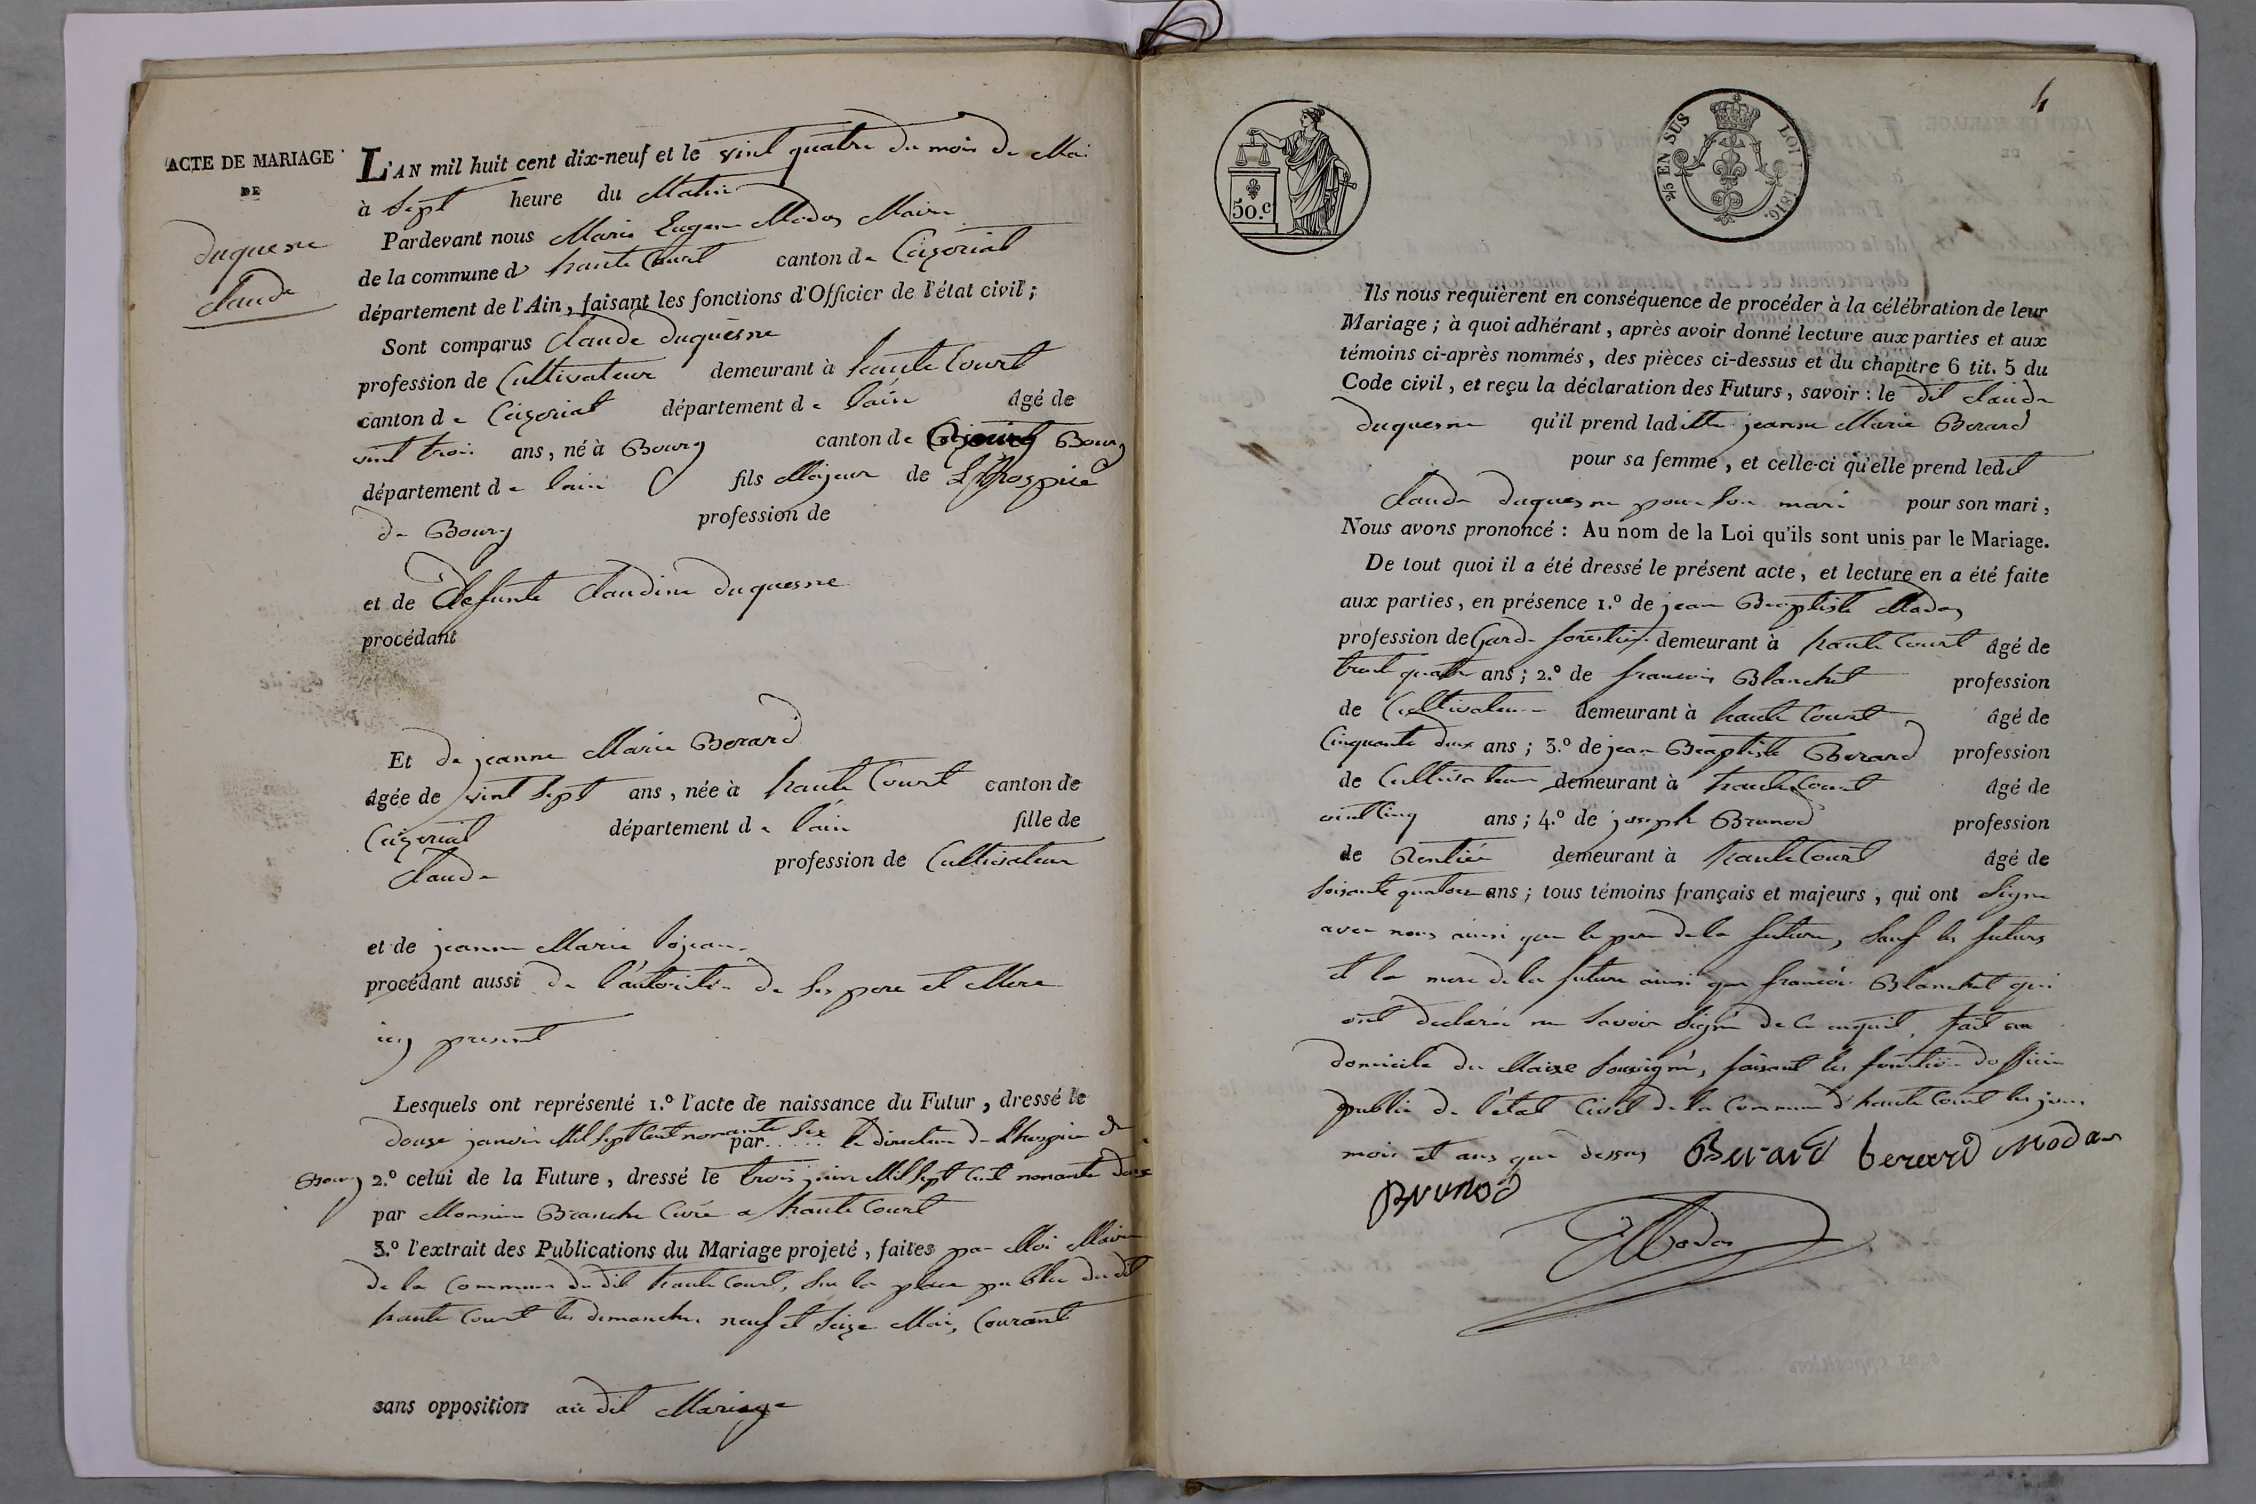 ACTE DE MARIAGE
DE
duquesne
claude
L'AN mil huit cent dix-neuf et le vint quatre du mois de Mai
à sept heure du Matin
Pardevant nous Marie Eugene Modas Maire
de la commune d haute Court canton de Ceizeriat
département de l'Ain, faisant les fonctions d'Officier de l'état civil ;
Sont comparus claude duquesne
profession de Cultivateur demeurant à haute Court
canton de Ceizeriat département de l'ain âgé de
vint trois ans, né à Bourg canton de Bourg
département de l'ain fils Majeur de L'hospice
de Bourg profession de
et de defunte Claudine duquesne
procédant
Et de jeanne Marie Berard
âgée de vint sept ans, née à haute Court canton de
Ceizeriat département de l'ain fille de
Claude profession de Cultivateur
et de jeanne Marie
procédant aussi de l'autorité de ses pere et Mere
icy present
Lesquels ont représenté 1.º l'acte de naissance du Futur, dressé le
douze janvier Mil sept Cent nonante six par le directeur de L'hospice de
Bourg 2.º celui de la Future, dressé le trois juin Mil sept Cent nonante deux
par Monsieur Branche Curé a haute Court
3.º l'extrait des Publications du Mariage projeté, faites par Moi Maire
de la Commune du dit haute Court, sur la place publie du dit
haute Court les dimanches neuf et seize Mai, Courant
sans opposition au dit Mariage
4
50.c
2/5 EN SUS
LOI 1816.
Ils nous requièrent en conséquence de procéder à la célébration de leur
Mariage ; à quoi adhérant, après avoir donné lecture aux parties et aux
témoins ci-après nommés, des pièces ci-dessus et du chapitre 6 tit. 5 du
Code civil, et reçu la déclaration des Futurs, savoir : le dit claude
duquesne qu'il prend laditte jeanne Marie Berard
pour sa femme, et celle-ci qu'elle prend ledit
Claude duquesne pour son mari pour son mari,
Nous avons prononcé : Au nom de la Loi qu'ils sont unis par le Mariage.
De tout quoi il a été dressé le présent acte, et lecture en a été faite
aux parties, en présence 1.º de jean Baptiste Modas
profession de Garde forestier demeurant à haute Court âgé de
trente quatre ans ; 2.º de francois Blanchet profession
de Cultivateur demeurant à haute Court âgé de
Cinquante deux ans ; 3.º de jean Baptiste Berard profession
de Cultivateur demeurant à haute Court âgé de
vint cinq ans ; 4.º de joseph Brunod profession
de Rentier demeurant à haute Court âgé de
soisante quatorze ans ; tous témoins français et majeurs, qui ont signe
avec nous ainsi que le pere de la future, sauf les futurs
et la mere de la future ainsi que francois Blanchet qui
ont declaré ne savoir signé de ce enquit, fait au
domicile du Maire soussigné, faisant les fonction d'officier
public de l'état Civil de la Commune d'haute Court les jour
mois et ans que dessus Berard berard Modas
Brunod
Modas